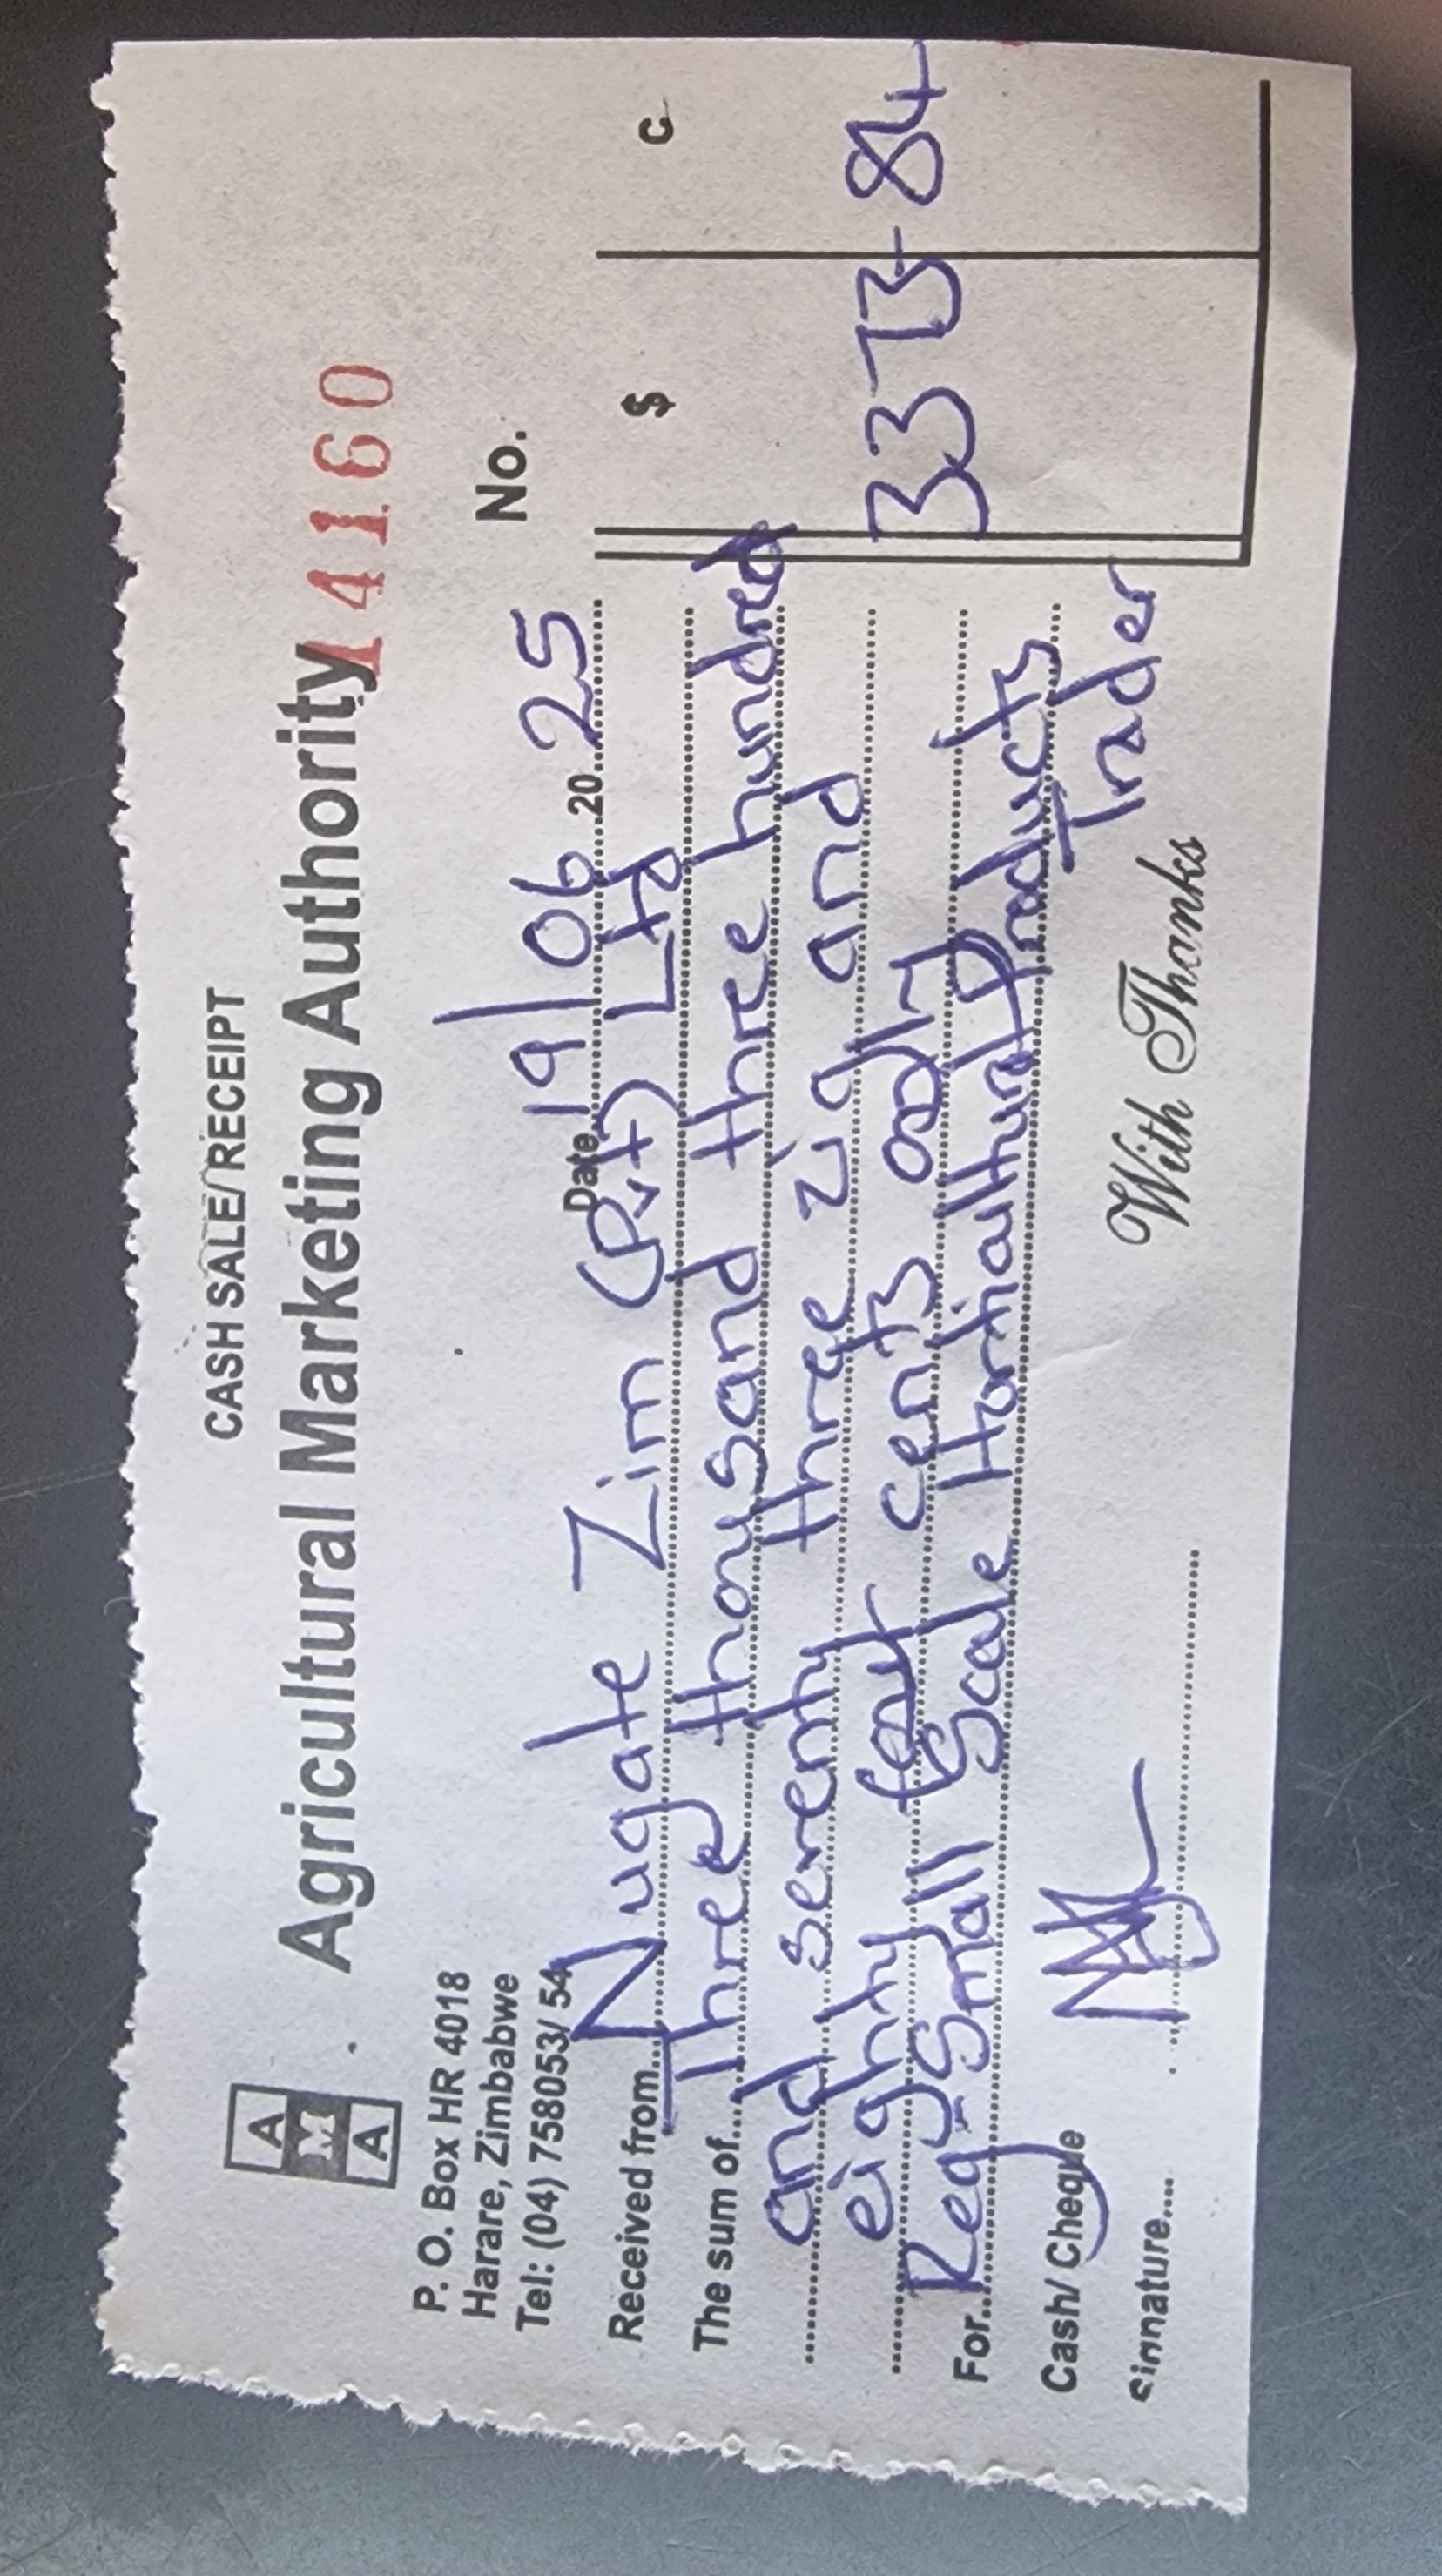 CASH SALE/RECEIPT
A
M
A
Agricultural Marketing Authority
14160
P. O. Box HR 4018
Harare, Zimbabwe
Tel: (04) 758053/ 54
No.
Date 19/06 20 25
Received from Nugate Zim (Pvt) Ltd
$ c
The sum of Three thousand three hundred
and seventy three zig and
3373-84
eighty four cents only
For Reg Small Scale Horticultural Products
Trader
Cash/ Cheque
With Thanks
Signature